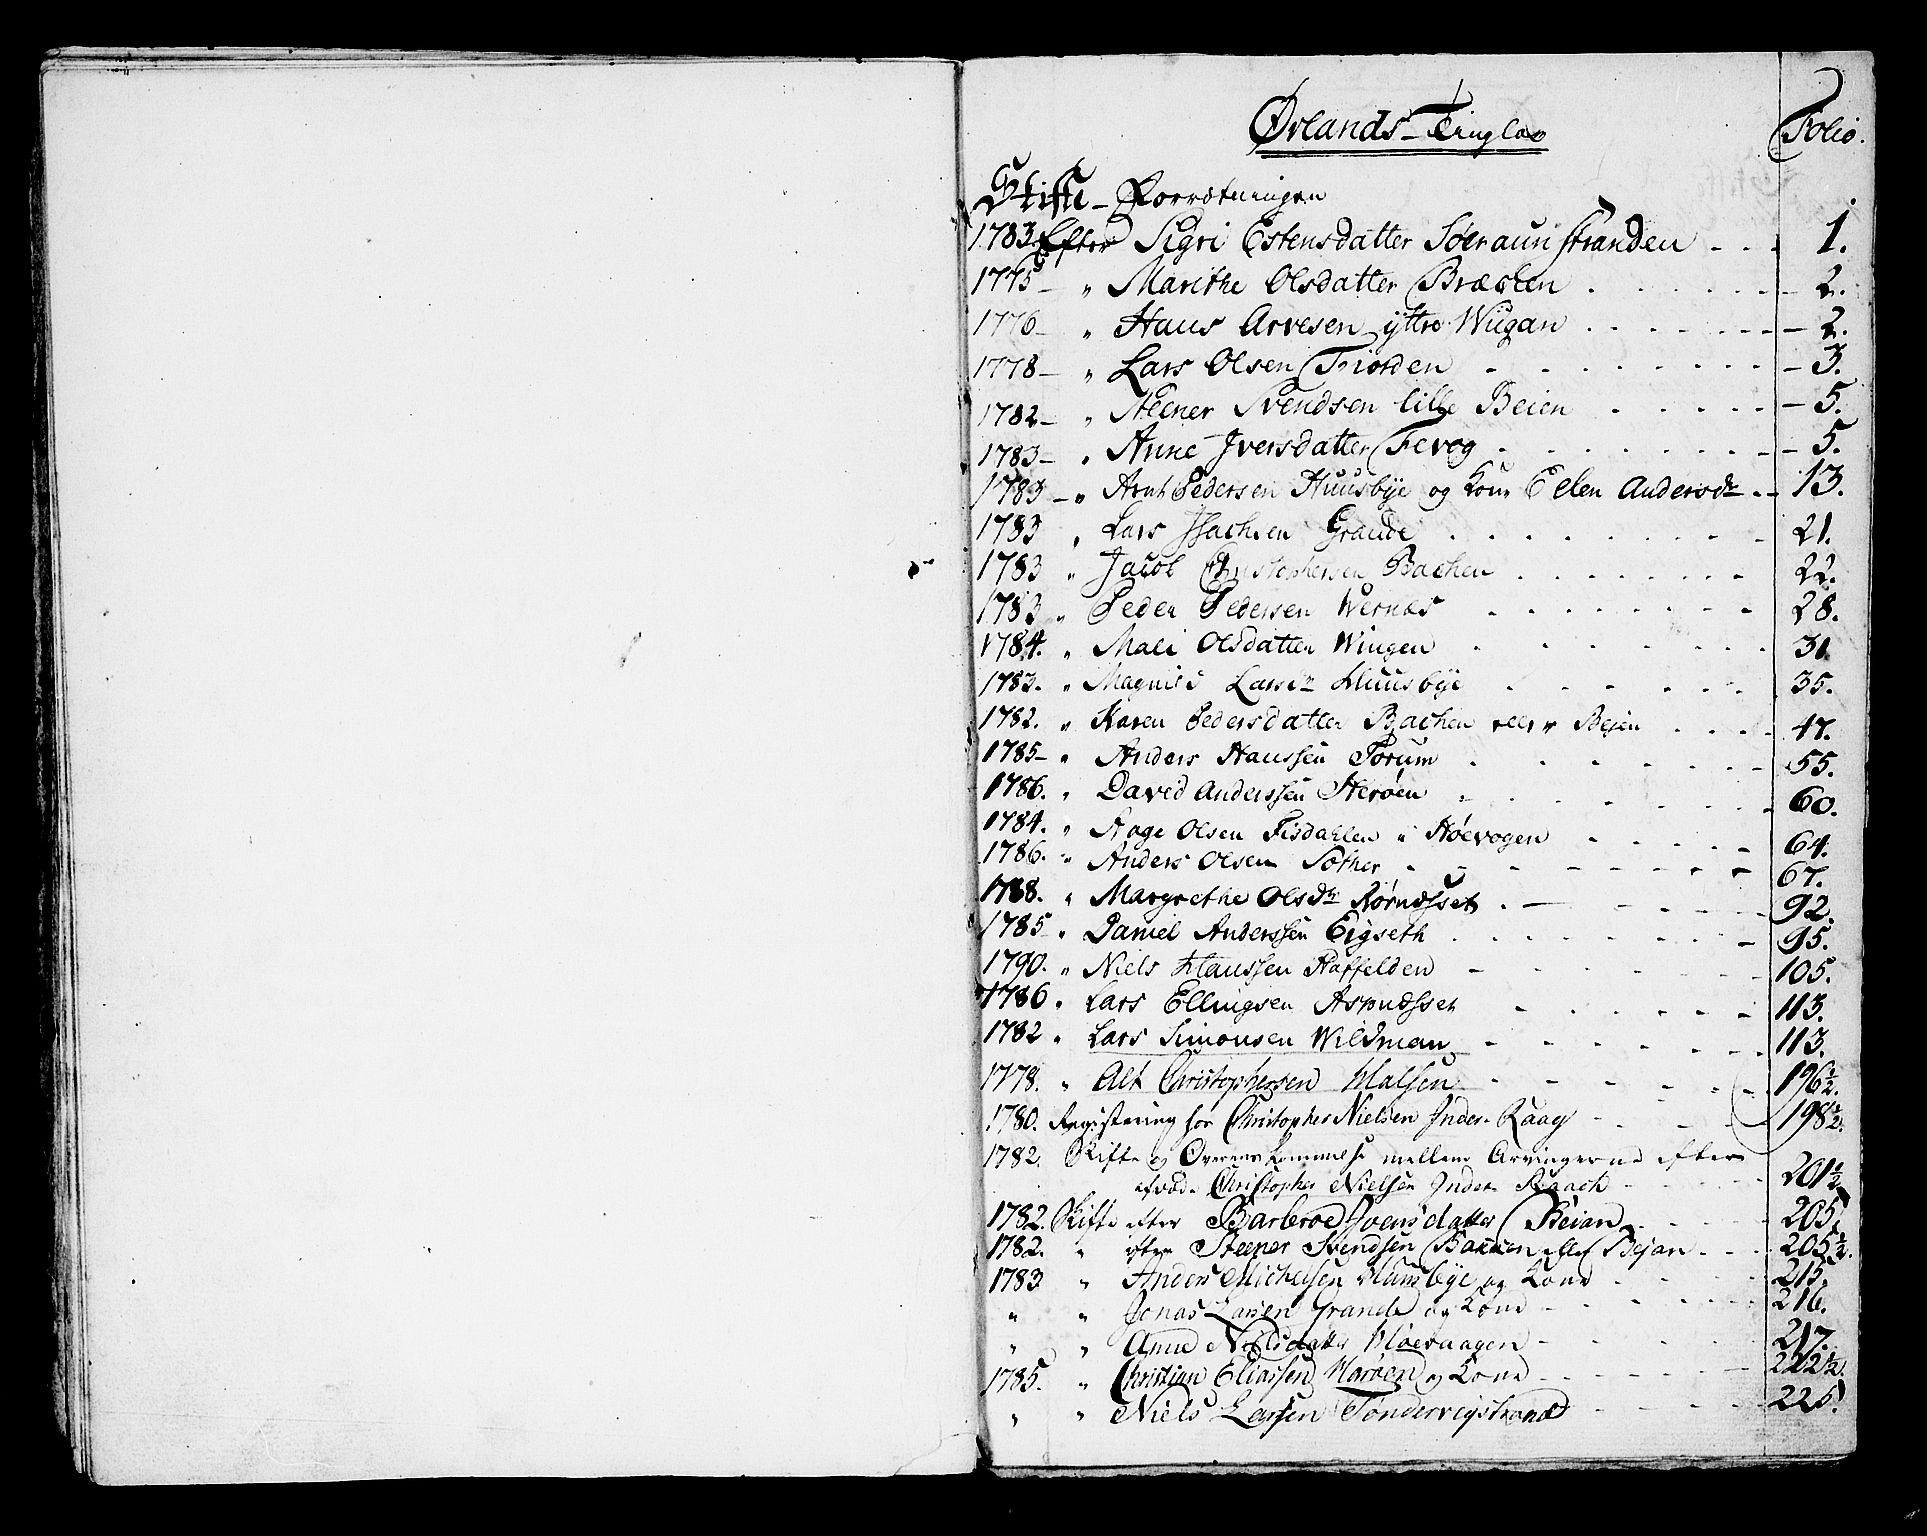 Ørlands Tinglav
Folio.
Skifte-Forretningen
1783 Efter Sigri Estensdatter Søeraunstranden - - 1.
1775 - " Marithe Olsdatter Bræchen - - 2.
1776 - " Hans Arvesen yttre Wigan - - 2.
1778 - " Lars Olsen Fiorden - - 3.
1782 - " Steener Svendsen lille Beien - - 5.
1783 - " Anne Iversdatter Fevog - - 5.
1783 - " Arnt Pedersen Huusbÿe og Kone Eelen Andersdr - - 13.
1783 " Lars Isachsen Grande - - 21.
1783 " Jacob Christophersen Bachen - - 22.
1783 " Peder Pedersen Wernæs - - 28.
1784. " Mali Olsdatter Wingen - - 31.
1783. " Larsdr Huusbÿe - - 35.
1782. " Karen Pedersdatter Bachen eller Bejen - - 47.
1785 - " Anders Hanssen Borum - - 55.
1786. " David Anderssen Herøen - - 60.
1784. " Aage Olsen Fisdahlen i Høevogen - - 64.
1786. " Anders Olsen Sother - - 67.
1788. " Margrethe Olsdr Rørndsset - - 92.
1785 " Daniel Anderssen Eigseth - - 95.
1790. " Niels Hanssen - - 105.
1786 " Lars Ellingsen - - 113.
1782 " Lars Simonsen Wildman - - 113.
1778. " Alt Christophersen Halsen - - 196½.
1780. Registering hos Christopher Nielsen Inder-Raag - - 198½.
1782. Skifte og Overens Kommelse mellem Arvingerne efter
afvøde Christopher Nielsen Inder Raach - - 201½
1782. Skifte efter Barbroe Joensdatter Beian - - 205.
1782. " efter Steener Svendsen Backen eller Bejan - - 205½.
1783 " Anders Michelsen Huusbÿe og Kone - - 215.
" " Jonas Larsen Grande og Kone - - 216.
" " Anne Nielsdatter Høevaagen - - 217.
1785. " Christian Eliassen Harøen og Kone - - 222½.
" " Niels Larsen Tøndervigstrand - - 225.